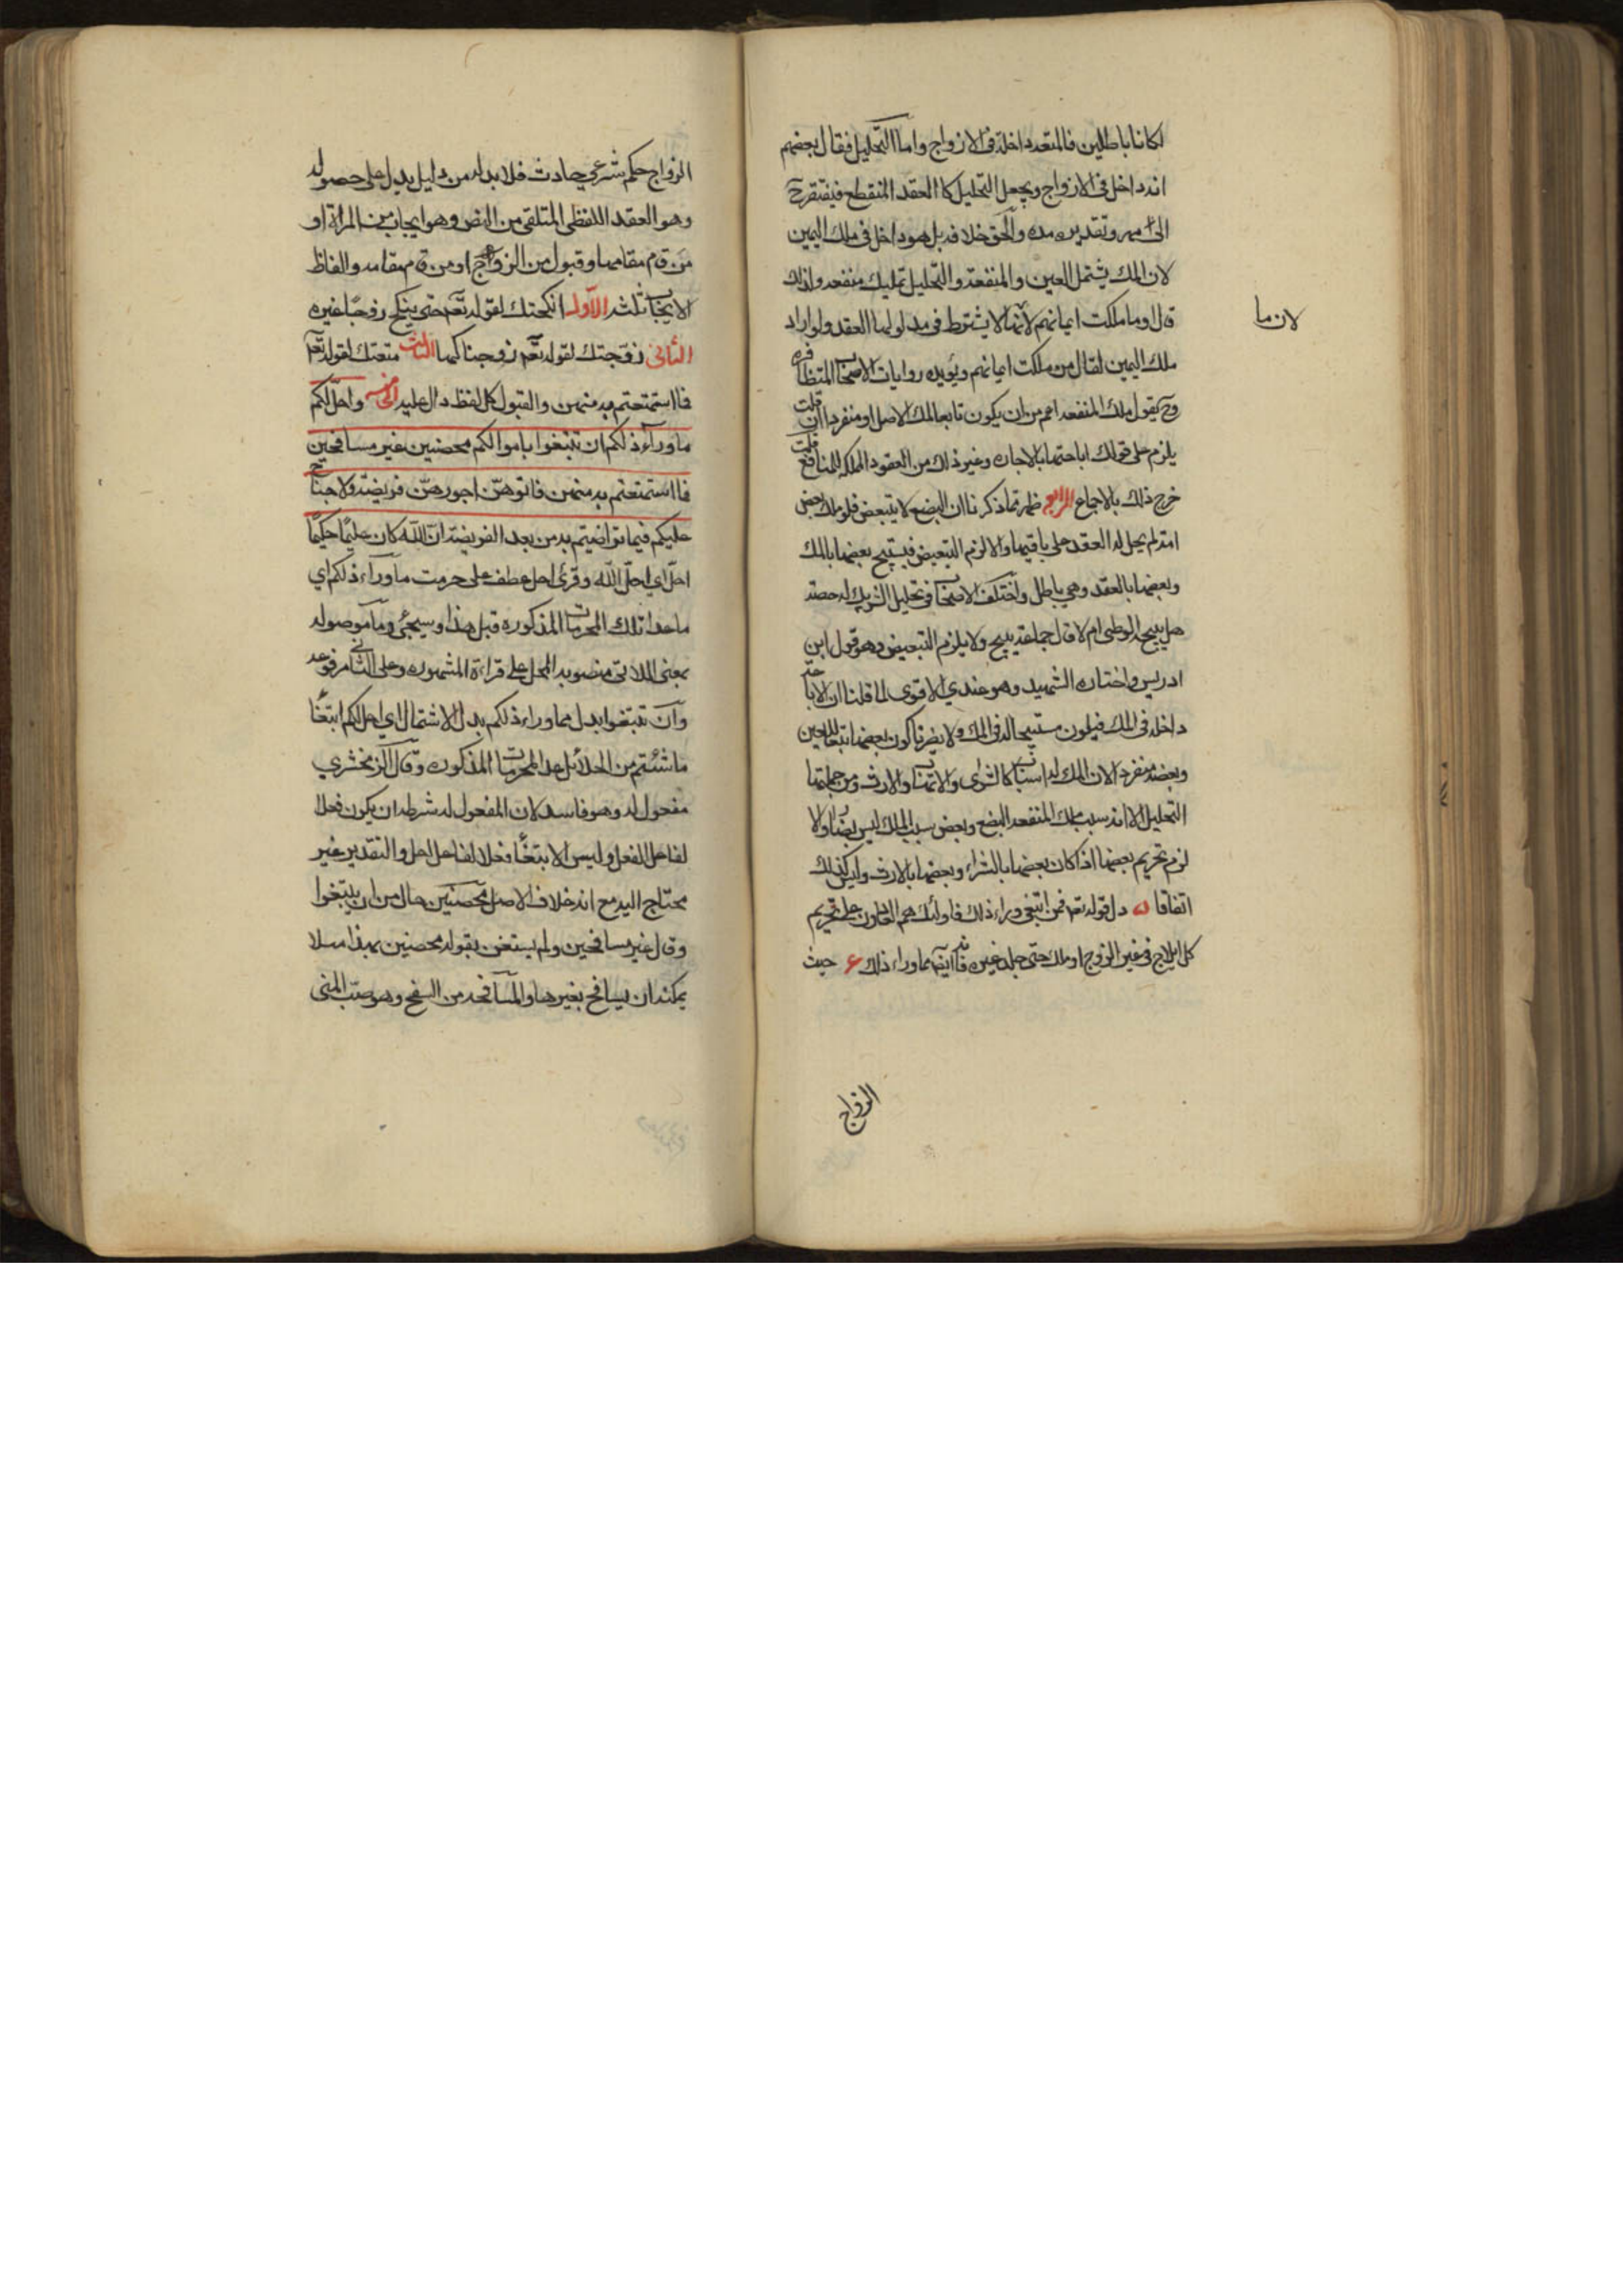 لكانا باطلين فالمتعة داخلة في الازواج واما التحليل فقال بعضهم
انه داخل في الازواج ويجعل التحليل كالعقد المنقطع فيفتقر ح
الى مهر وتقدير مده والحق خلافه بل هو داخل في ملك اليمين
لان الملك يشتمل العين والمنفعة والتحليل تمليك منفعه ولذلك
قال او ما ملكت ايمانهم لانها لا يشترط في مدلولها العقد ولو اراد
لان ما
ملك اليمين لقال من ملكت ايمانهم ويؤيده روايات الاصحاب المتظافره
وح يقول ملك المنفعه اعم من ان يكون تابعا لملك الاصل او منفردا ان قلت
يلزم على قولك اباحتها بالاجاره وغير ذلك من العقود المملكه للمنافع قلت
خرج ذلك بالاجماع الرابع ظهر مما ذكرنا ان البضع لا يتبعض فلو ملك بعض
امته لم يحل له العقد على باقيها والا لزم التبعيض فيستبيح بعضها بالملك
وبعضها بالعقد وهي باطل واختلف الاصحاب في تحليل الشريك له حصته
هل يبيح الوطى ام لا قال جماعة يبيح ولا يلزم التبعيض وهو قول ابن
ادريس واختاره الشهيد وهو عندي الاقوى لما قلنا ان الاباحة
داخله في الملك فيكون مستبيحا له في الملك ولا يضرنا كون بعضها تبعا للعين
وبعضه منفردا لان الملك له اسباب كالشرى والاتهاب والارث ومن جملتها
التحليل الا انه سبب يملك المنفعه البضع وبعض سبب الملك ليس بضاير والا
لزم تحريم بعضها اذا كان بعضها بالشراء وبعضها بالارث وليس كذلك
اتفاقا ه دل قوله تع فمن ابتغى وراء ذلك فاولئك هم العادون على تحريم
كل ايلاج في غير الزوج او ملك حتى جلد غيره فانه ايضا مما وراء ذلك ع حيث
الزواج
الزواج حكم شرعي حادث فلا بد له من دليل يدل على حصوله
وهو العقد اللفظي المتلقى من النص وهو ايجاب من المراة او
من قام مقامها وقبول من الزوج او من قام مقامه والفاظ
الايجاب ثلثه الاول انكحتك لقوله تع حتى ينكح زوجا غيره
الثاني زوجتك لقوله تع زوجناكها الثالث متعتك لقوله تع
فما استمتعتم به منهن والقبول كل لفظ دال عليه الخامسه واحل لكم
ما وراء ذلكم ان تبتغوا باموالكم محصنين غير مسافحين
فما استمتعتم به منهن فاتوهن اجورهن فريضة ولا جناح
عليكم فيما تراضيتم به من بعد الفريضة ان الله كان عليما حكيما
احل اي احل الله وقرئ احل عطف على حرمت ما وراء ذلكم اي
ما عدا تلك المحرمات المذكوره قبل هذا وسيجئ وما موصوله
بمعنى اللاتي منصوبه المحل على قراءة المشهوره وعلى الثاني مرفوعه
وان تبتغوا بدل مما وراء ذلكم بدل الاشتمال اي احل لكم ابتغاء
ما شئتم من الحلائل عدا المحرمات المذكوره وقال الزمخشري
مفعول له وهو فاسد لان المفعول له شرطه ان يكون فعلا
لفاعل الفعل وليس الابتغاء فعلا لفاعل احل والتقدير غير
محتاج اليه مع انه خلاف الاصل محصنين حال من ان يبتغوا
وقال غير مسافحين ولم يستغن بقوله محصنين بهذا مسلا
يمكنه ان يسافح بغيرها والمسافحه من السفح وهو صب المني